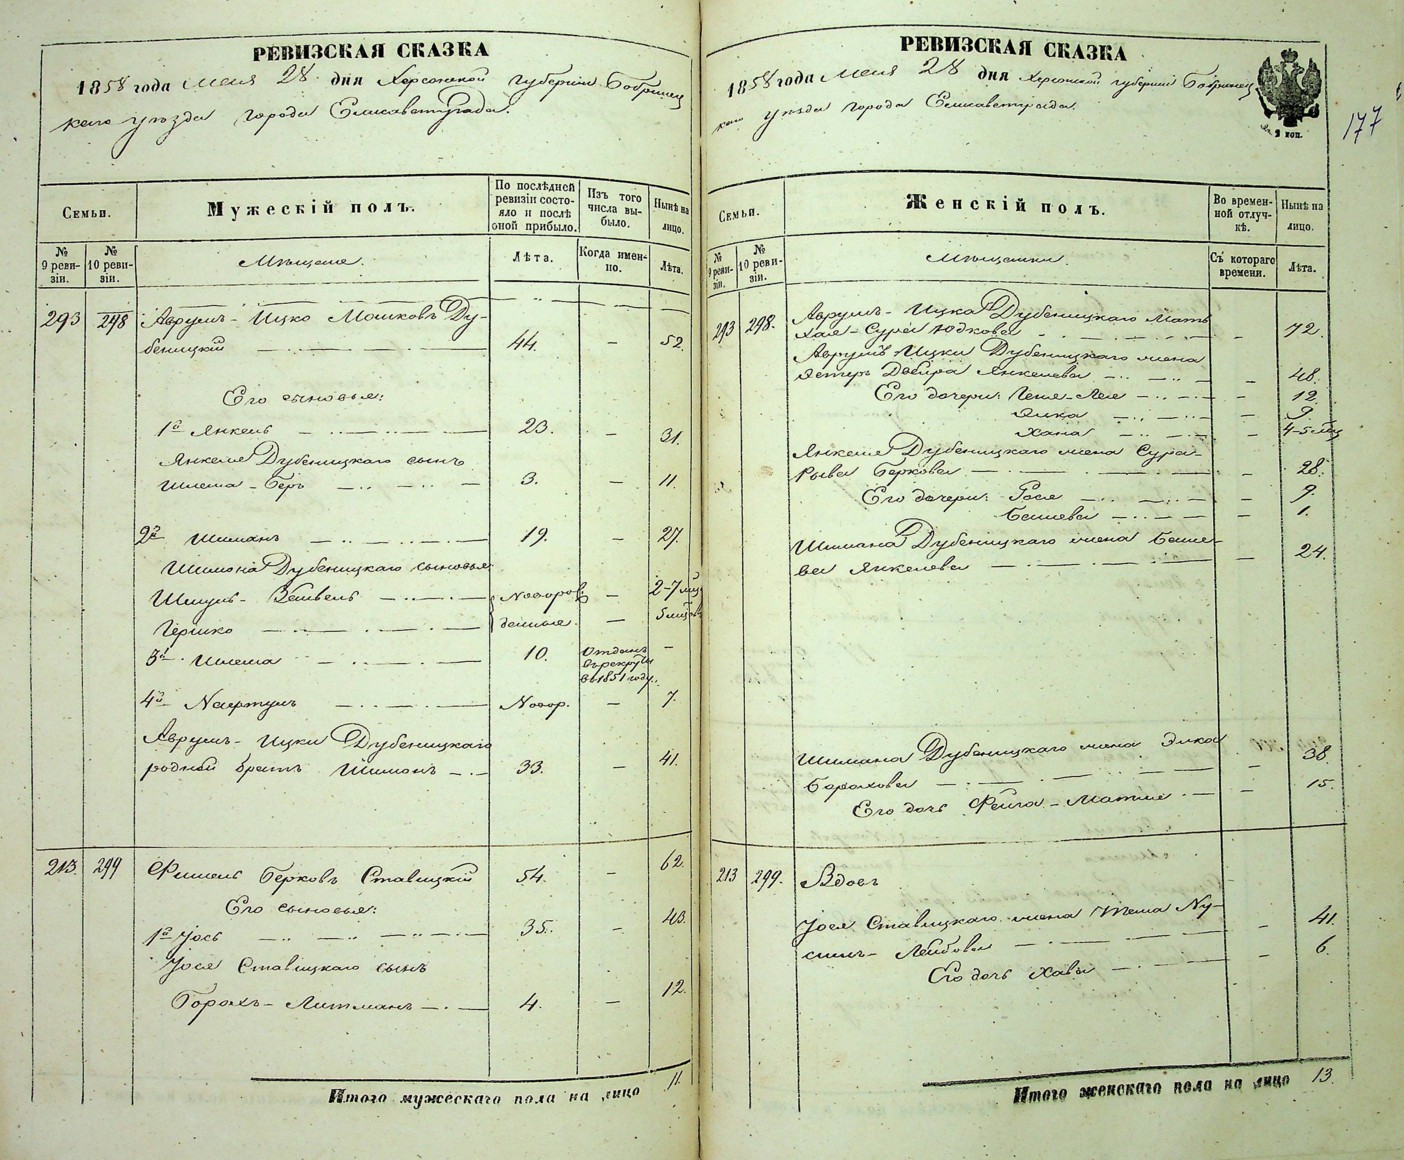 РЕВИЗСКАЯ СКАЗКА
1858 года Мая 28 дня Херсонской губернии Бобринец
каго уѣзда города Елисаветграда.
Семьи.
Мужескій полъ.
По послѣдней ревизіи состояло и послѣ оной прибыло.
Изъ того числа выбыло.
Нынѣ на лицо.
№ 9 ревизіи.
№ 10 ревизіи.
Мѣщане.
Лѣта.
Когда именно.
Лѣта.
293 298 Аврумъ-Ицко Мошковъ Ду-
беницкій 44. — 52.
Его сыновья:
1й Янкель 23. — 31.
Янкеля Дубеницкаго сынъ
Шлема-Беръ 3. — 11.
2й Шимонъ 19. — 27.
Шимона Дубеницкаго сыновья
Шмуль-Зейвель новорож — 2-7 мѣ
Гершко денные. — 5 мѣсов
3й Шлема 10. Отданъ въ рекруты въ 1851 году. —
4й Нафтулъ Новор. — 7.
Аврумъ-Ицки Дубеницкаго
родной братъ Шимонъ 33. — 41.
213. 299 Фишель Берковъ Ставицкій 54. — 62.
Его сыновья:
1й Іось 35. — 43.
Іося Ставицкаго сынъ
Борохъ-Литманъ 4. — 12.
Итого мужескаго пола на лицо 11.
РЕВИЗСКАЯ СКАЗКА
1858 года Мая 28 дня Херсонской губерніи Бобринец
каго уѣзда города Елисаветграда.
177
Семьи.
Женскій полъ.
Во временной отлучкѣ.
Нынѣ на лицо.
№ 9 ревизіи.
№ 10 ревизіи.
Мѣщанки.
Съ котораго времени.
Лѣта.
293 298. Аврумъ-Ицка Дубеницкаго мать
Хая-Сура Юдкова — 72.
Аврумъ Ицки Дубеницкаго жена
Эстеръ Двейра Янкелева — 48.
Его дочери: Геня-Лея — 12.
Элка — 9
Хана — 4-5 мѣс
Янкеля Дубеницкаго жена Сура-
Рыва Беркова — 28.
Его дочери: Рося — 9.
Башева — 1.
Шимона Дубеницкаго жена Баше-
ва Янкелева — 24.
Шимона Дубеницкаго жена Элка
Борохова — 38
Его дочь Фейга-Матля — 15.
213 299. Вдовъ
Іося Ставицкаго жена Тема Ну-
синъ-Лейбова — 41.
Его дочь Хава — 6.
Итого женскаго пола на лицо 13.